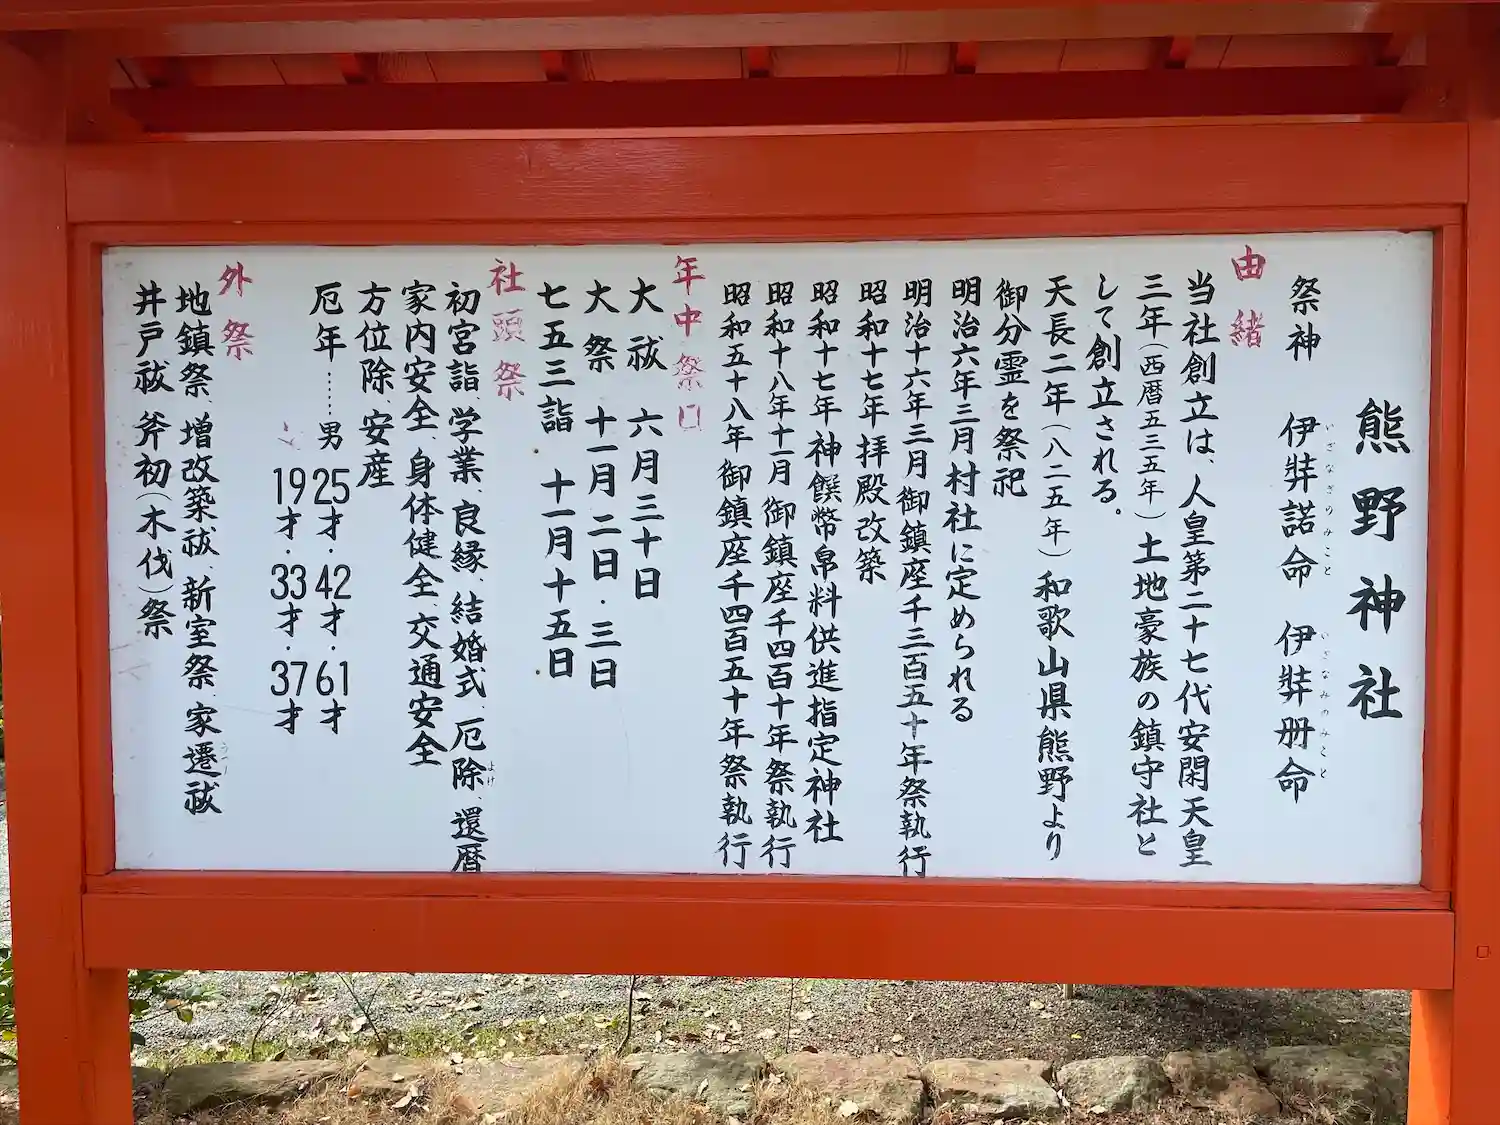 熊野神社
祭神 伊弉諾命 伊弉册命
いざなぎのみこと いざなみのみこと
由緒
当社創立は、人皇第二十七代安閑天皇
三年(西暦五三五年)土地豪族の鎮守社と
して創立される。
天長二年(八二五年)和歌山県熊野より
御分霊を祭祀
明治六年三月村社に定められる
明治十六年三月御鎮座千三百五十年祭執行
昭和十七年拝殿改築
昭和十七年神饌幣帛料供進指定神社
昭和十八年十一月御鎮座千四百十年祭執行
昭和五十八年御鎮座千四百五十年祭執行
年中祭日
大祓 六月三十日
大祭 十一月二日・三日
七五三詣 十一月十五日
社頭祭
初宮詣、学業、良縁、結婚式、厄除 還暦
よけ
家内安全、身体健全、交通安全
方位除 安産
厄年……男25才・42才・61才
19才・33才・37才
外祭
地鎮祭、増改築祓、新室祭、家遷祓
うつし
井戸祓 斧初(木伐)祭